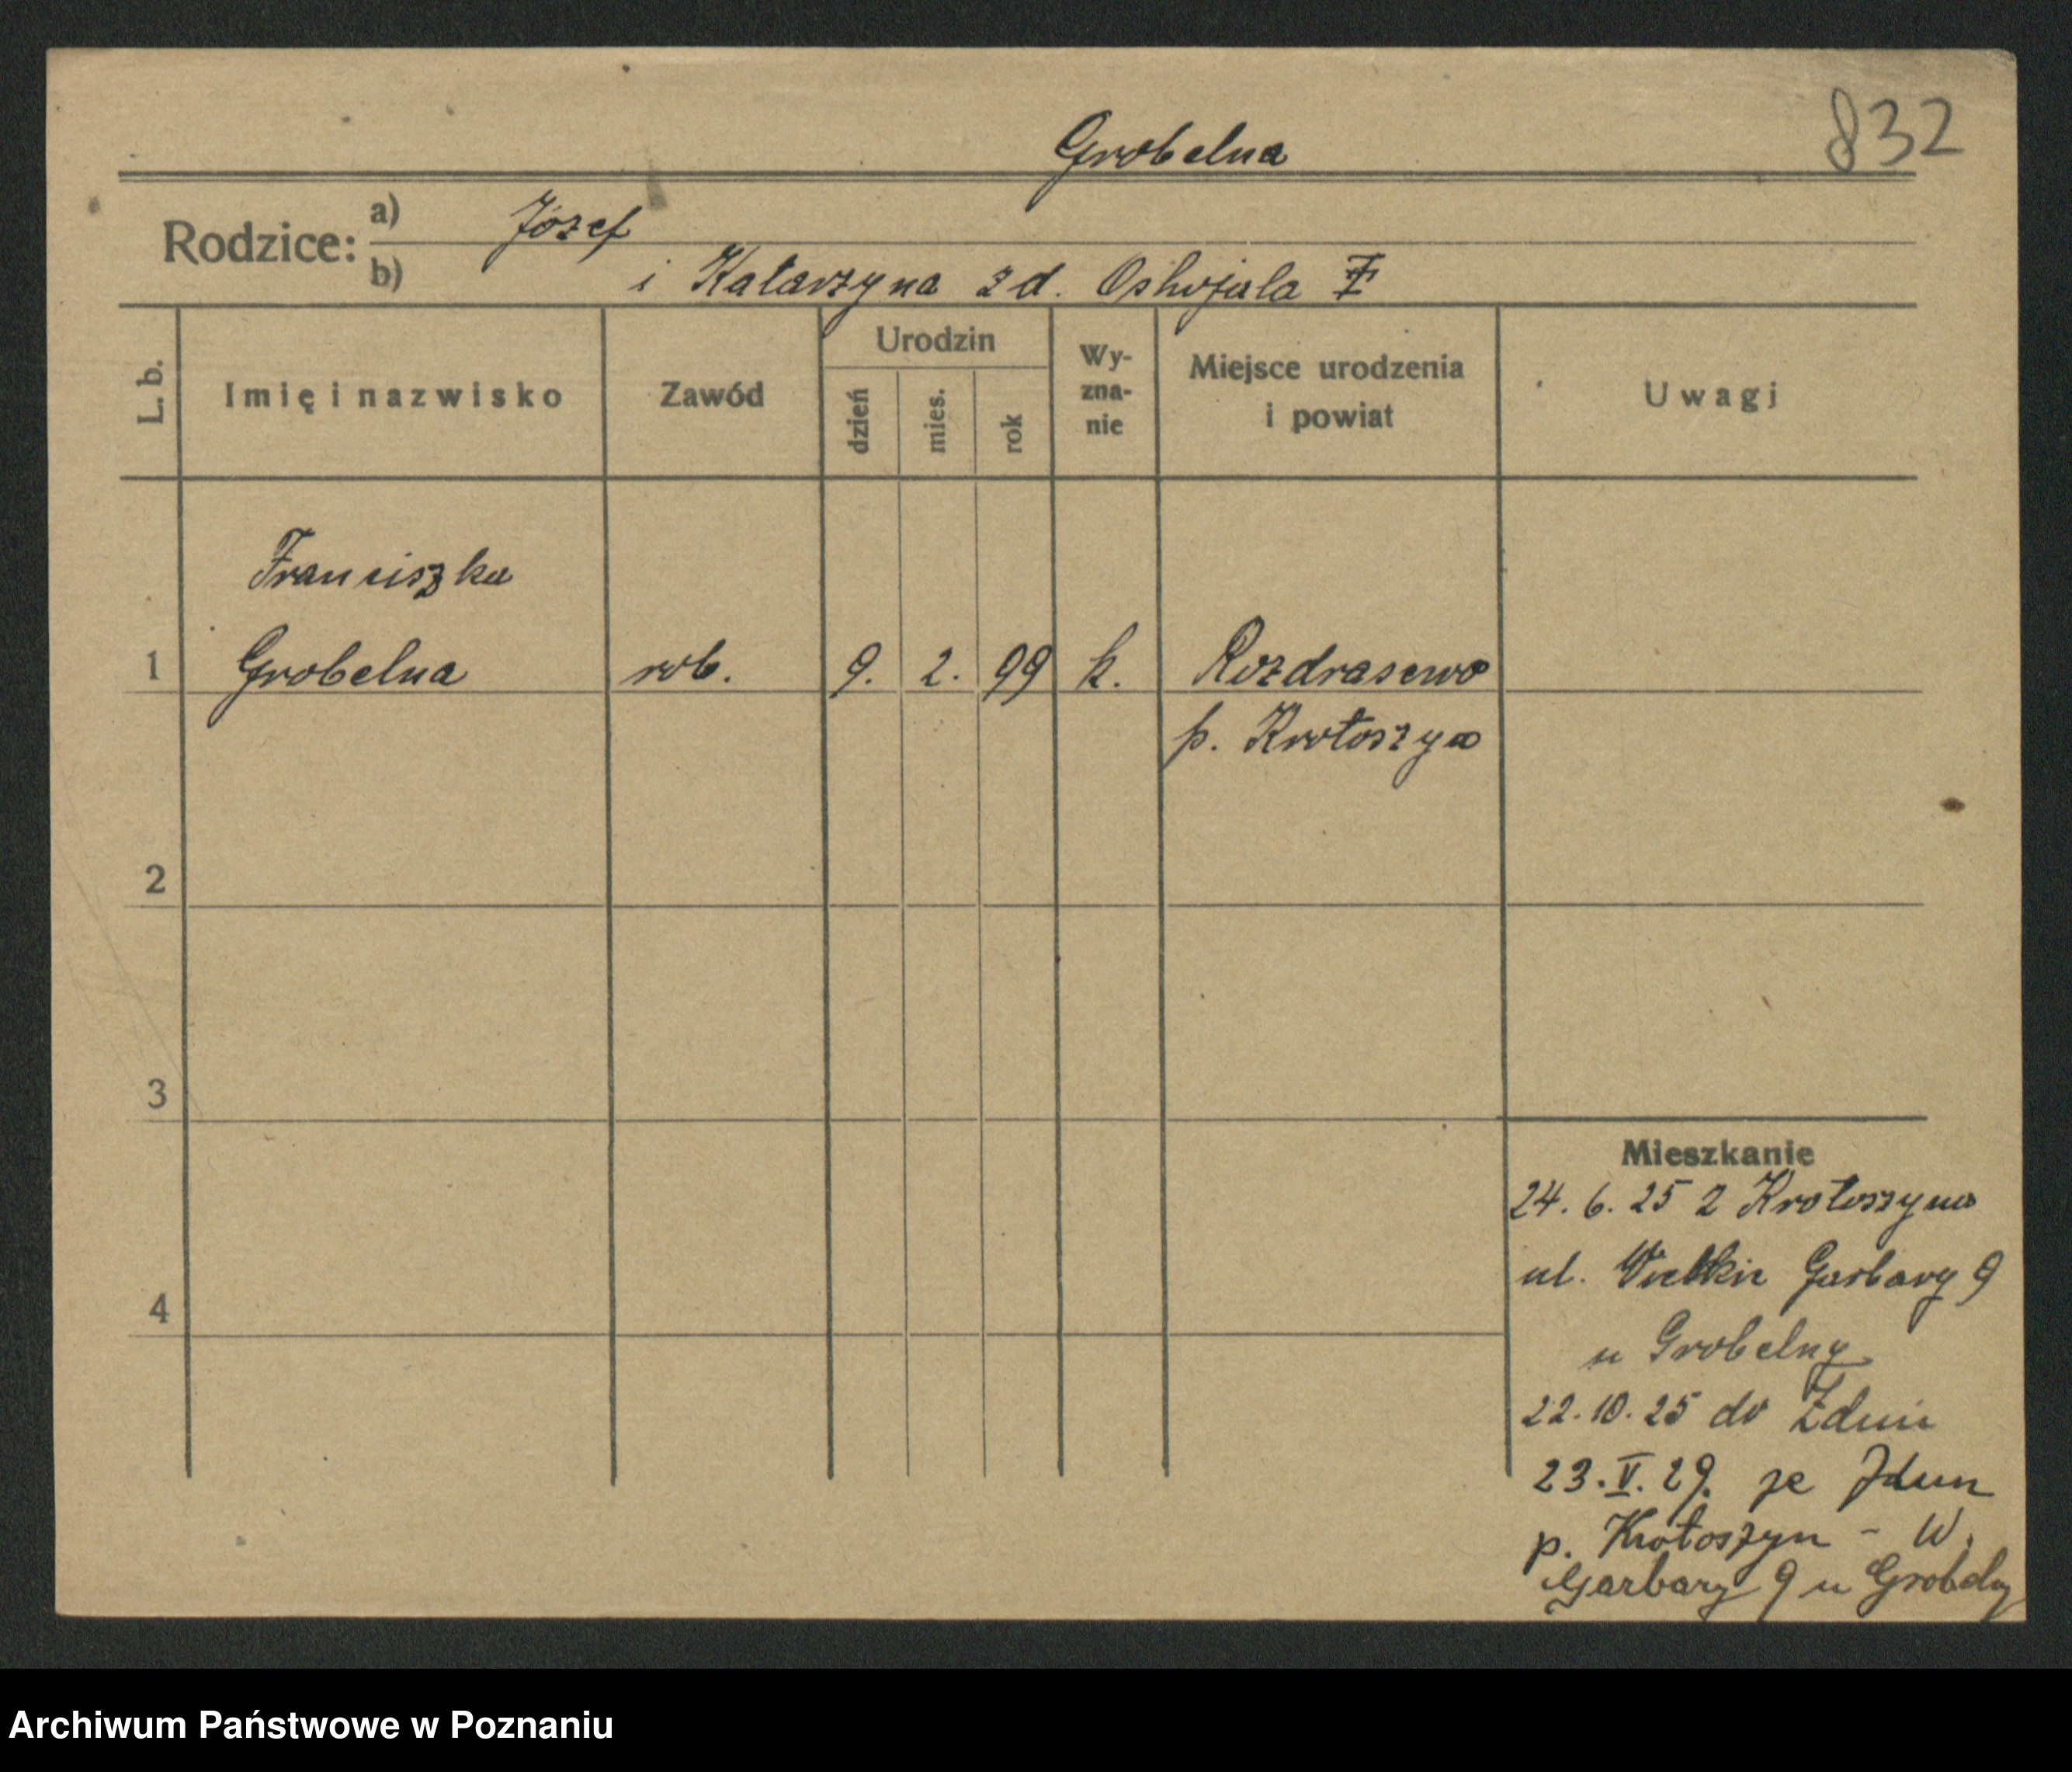 832
Grobelna
Rodzice: a) Józef
b) i Katarzyna zd.
L. b.
Imię i nazwisko
Zawód
Urodzin
dzień
mies.
rok
Wy-
zna-
nie
Miejsce urodzenia
i powiat
Uwagi
Franciszka
1 Grobelna rob. 9. 2. 99 k. Rozdrasewo
p. Krotoszyn
2
3
4
Mieszkanie
24. 6. 25 z Krotoszyna
ul. Wielkie Garbary 9
u Grobelny
22. 10. 25 do Zdun
23. V. 29. ze Zdun
p. Krotoszyn - W.
Garbary 9 u Grobelny
Archiwum Państwowe w Poznaniu